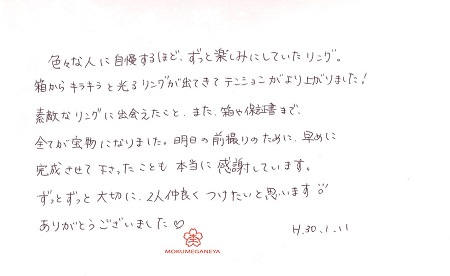 色々な人に自慢するほど、ずっと楽しみにしていたリング。
箱からキラキラと光るリングが出てきてテンションがより上がりました！
素敵なリングに出会えたこと、また、箱や保証書まで、
全てが宝物になりました。明日の前撮りのために、早めに
完成させて下さったことも本当に感謝しています。
ずっとずっと大切に、2人仲良くつけたいと思います
ありがとうございました♡
H.30.1.11
MOKUMEGANEYA